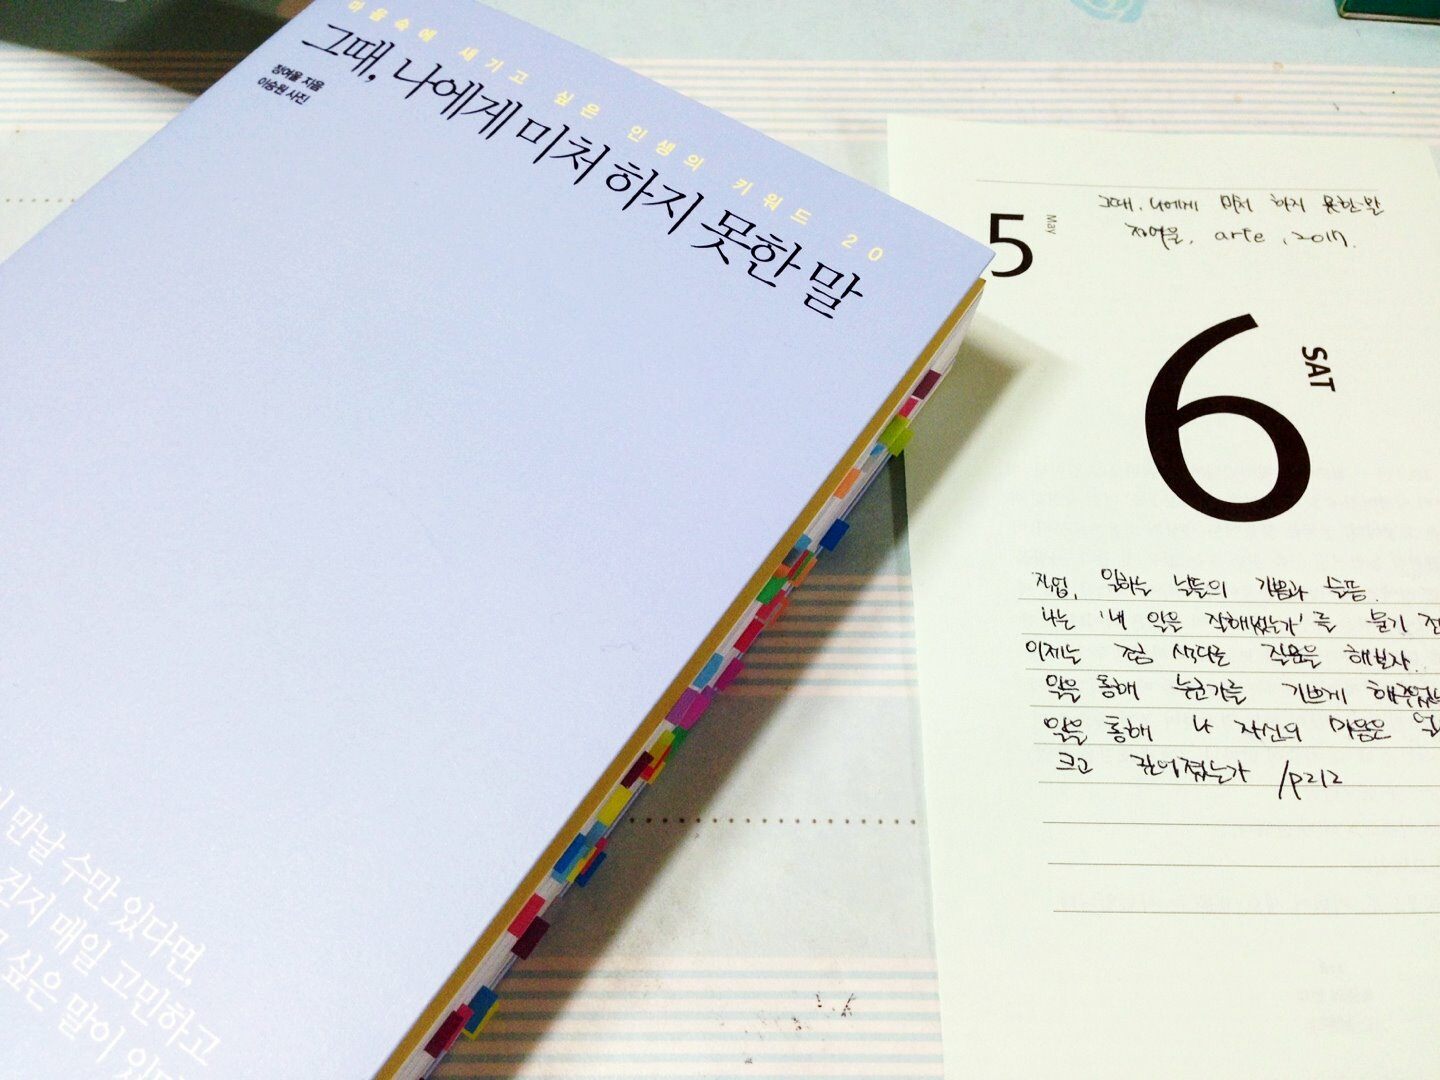 마음속에 새기고 싶은 인생의 키워드 20
그때, 나에게 미처 하지 못한 말
정여울 지음
이승원 사진
만날 수만 있다면,
건지 매일 고민하고
싶은 말이
5
May
그때, 나에게 미처 하지 못한 말
정여울, arte, 2017.
6
SAT
직업, 일하는 날들의 기쁨과 슬픔.
나는 '내 일을 잘해냈는가'를 묻기 전
이제는 좀 색다른 질문을 해보자.
일을 통해 누군가를 기쁘게 해주었
일을 통해 나 자신의 마음은
크고 깊어졌는가 /p212